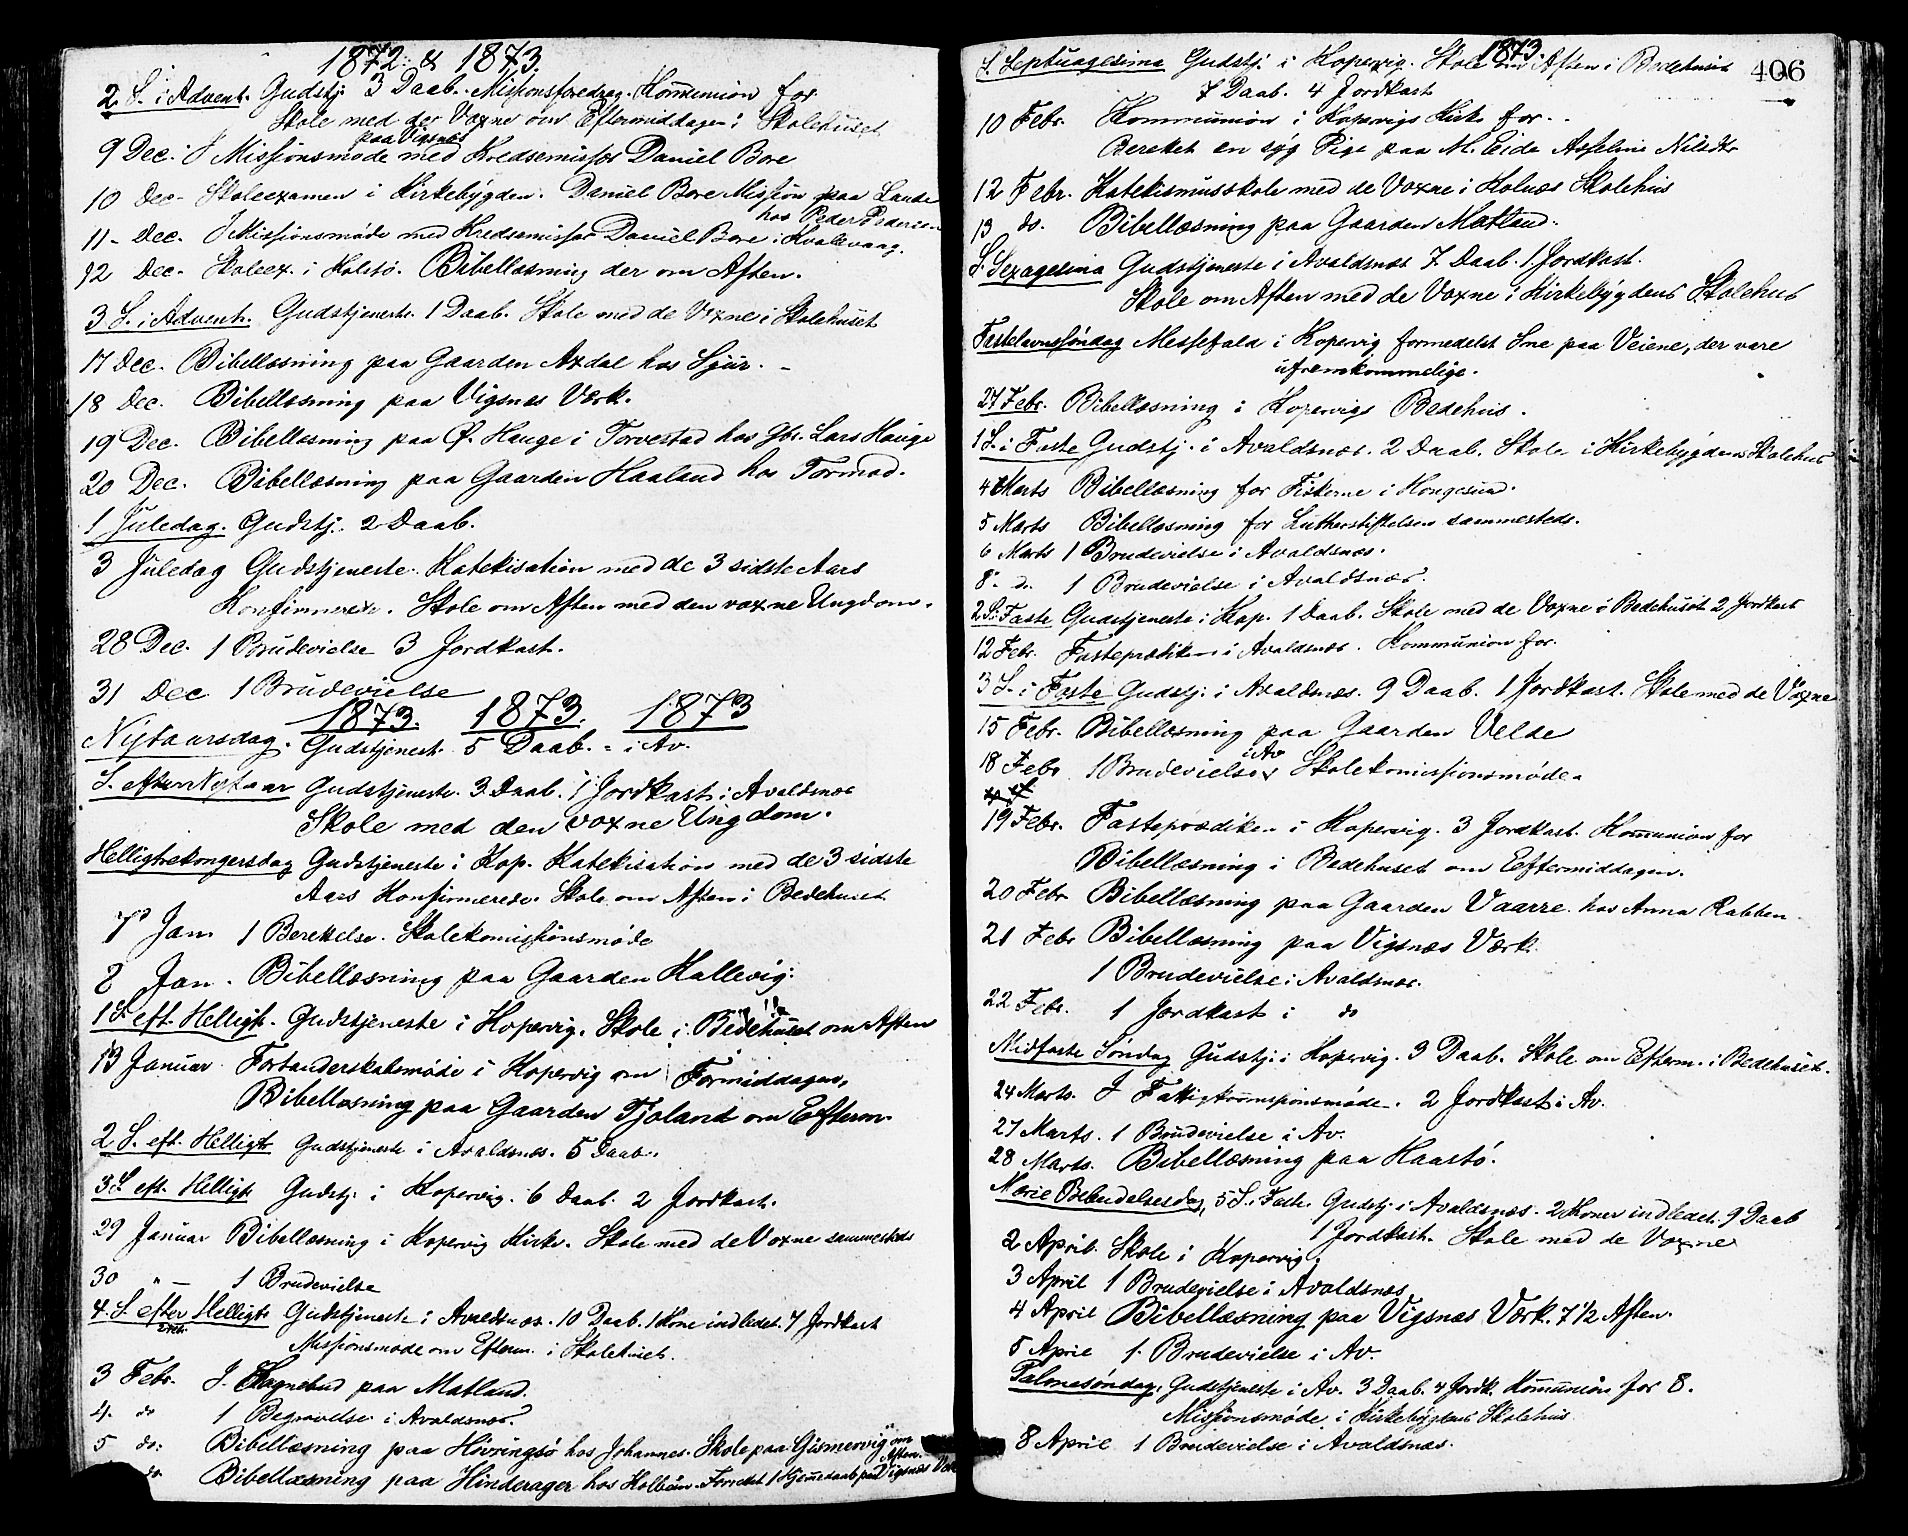 1872 & 1873.
2. S. i Advent. Gudstj. 3 Daab. Missionsforedrag. Kommunion for
Skole med der Voxne om Eftermiddagen i Skolehuset
paa Vigsnæs
9 Dec. I Missionsmøde med Kredsemissær Daniel Bore
10 Dec. Skoleexamen i Kirkebygden. Daniel Bore Mission paa Lande
hos Peder Pedersen
11 Dec. I Missionsmøde med Kredsemissær Daniel Bore i Kvalevaag.
12 Dec. Skoleex. i Holstø. Bibellæsning der om Aften.
3 S. i Advent. Gudstjeneste. 1 Daab. Skole med de Voxne i Skolehuset
17 Dec. Bibellæsning paa Gaarden Axdal hos Sjur.
18 Dec. Bibellæsning paa Vigsnæs Værk.
19 Dec. Bibellæsning paa Ø. Hauge i Torvestad hos Gbr. Lars Hauge
20 Dec. Bibellæsning paa Gaarden Haaland hos Tormod.
1 Juledag. Gudstj. 2 Daab.
3 Juledag Gudstjeneste. Katekisation med de 3 sidste Aars
Konfirmerede. Skole om Aften med den voxne Ungdom.
28 Dec. 1 Brudevielse 3 Jordkast.
31 Dec 1 Brudevielse
1873. 1873. 1873
Nytaarsdag. Gudstjenest. 5 Daab. - i Av.
S. efter Nytaar Gudstjeneste. 3 Daab. 1 Jordkast i Avaldsnæs
Skole med den voxne Ungdom.
Helligtrekongersdag Gudstjeneste i Kop. Katekisation med de 3 sidste
Aars Konfirmerede. Skole om Aften i Bedehuset
7 Jan 1 Berettelse. Skolekomissionsmøde
8 Jan. Bibellæsning paa Gaarden Hallevig.
1 S. eft. Helligtr. Gudstjeneste i Kopervig. Skole i Bedehuset om Aften
13 Januar Formanderskabsmøde i Kopervig om Formiddagen,
Bibellæsning paa Gaarden Tjoland om Efterm.
2 S. eft. Helligtr Gudstjeneste i Avaldsnæs. 5 Daab.
3 S. eft. Helligtr Gudstj. i Kopervig. 6 Daab. 2 Jordkast.
29 Januar Bibellæsning i Kopervig Kirke. Skole med de Voxne sammesteds
30 " — 1 Brudevielse
4. S. efter Helligtr Gudstjeneste i Avaldsnæs. 10 Daab. 1 Kone indledet. 7 Jordkast
2 Feb.
Missionsmøde om Efterm. i Skolehuset.
3 Febr. I. Sognebud paa Matland.
4. do 1 Begravelse i Avaldsnæs.
5 do: Bibellæsning paa Høvringsø hos Johannes. Skole paa Gismervig om
Aften.
do Bibellæsning paa Hinderager hos Kolbein. Forrettet 1 Hjemmedaab paa Vigsnæs Værk
1873
406
S. Septuagesima Gudstj. i Kopervig. Skole om Aften i Bedehuset
7 Daab. 4 Jordkast
10 Febr. Kommunion i Kopervigs Kirke for
Berettet en syg Pige paa M. Eide Asseline Nilsdtr
12 Febr. Katekismusskole med de Voxne i Kolnæs Skolehus
13 do. Bibellæsning paa Gaarden Matland.
S. Sexagesima Gudstjeneste i Avaldsnæs 7 Daab. 1 Jordkast.
Skole om Aften med de Voxne i Kirkebygdens Skolehus
Fastelavnssøndag Messefald i Kopervig formedelst Sne paa Veiene, der vare
ufremkommelige.
24 Febr. Bibellæsning i Kopervigs Bedehus.
1 S. i Faste Gudstj. i Avaldsnæs. 2 Daab. Skole i Kirkebygdens Skolehus
4 Marts Bibellæsning for Fiskerne i Hougesund.
5 Marts Bibellæsning for Lutherstiftelsen sammesteds.
6 Marts 1 Brudevielse i Avaldsnæs.
8 d. 1 Brudevielse i Avaldsnæs.
2 S. i Faste Gudstjeneste i Kop. 1 Daab. Skole med de Voxne i Bedehuset 2 Jordkast
12 Febr. Fasteprædiken i Avaldsnæs. Kommunion for.
3 S. i Faste Gudstj. i Avaldsnæs. 9 Daab. 1 Jordkast. Skole med de Voxne
15 Febr. Bibellæsning paa Gaarden Velde
i Av
18 Febr. 1 Brudevielse Skolekomissionsmøde
19 Febr. Fasteprædiken i Kopervig. 3 Jordkast. Kommunion for
Bibellæsning i Bedehuset om Eftermiddagen.
20 Febr Bibellæsning paa Gaarden Vaarre hos Anna Rabben
21 Febr Bibellæsning paa Vigsnæs Værk.
1 Brudevielse i Avaldsnæs.
22 Febr. 1 Jordkast i do
Midfaste Søndag Gudstj. i Kopervig. 3 Daab. Skole om Efterm. i Bedehuset.
24 Marts. I Fattigkomisionsmøde. 2 Jordkast i Av.
27 Marts. 1 Brudevielse i Av.
28 Marts. Bibellæsning paa Haastø.
Marie Bebudelsesdag, 5 S. i Faste. Gudstj. i Avaldsnæs. 2 Koner indledet. 9 Daab
1 Jordkast. Skole med de Voxne
2 April. Skole i Kopervig.
3 April 1 Brudevielse i Avaldsnæs
4 April Bibellæsning paa Vigsnæs Værk. 7 1/2 Aften.
5 April 1 Brudevielse i Av.
Palmesøndag. Gudstjeneste i Av. 3 Daab. 4 Jordk. Kommunion for 8.
Missionsmøde i Kirkebygdens Skolehus
8 April 1 Brudevielse i Avaldsnæs.